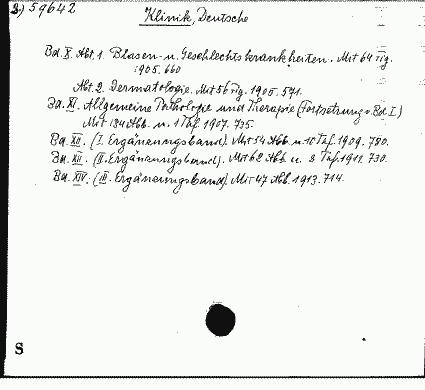 2) 59642
Klinik, Deutsche
Bd. X. Abt. 1. Blasen- u. Geschlechtskrankheiten. Mit 64 Fig.
1905. 660
Abt. 2. Dermatologie. Mit 56 Fig. 1905. 571.
Bd. XI. Allgemeine Pathologie und Therapie (Fortsetzung v. Bd. I.)
Mit 134 Abb. u. 1 Taf. 1907. 735.
Bd. XII. (I. Ergänzungsband). Mit 54 Abb. u. 10 Taf. 1909. 780.
Bd. XIII. (II. Ergänzungsband). Mit 62 Abb. u. 8 Taf. 1911. 730.
Bd. XIV. (III. Ergänzungsband). Mit 47 Abb. 1913. 714.
S